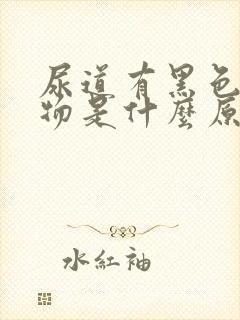 尿道有黑色
物是什麼原
水紅袖